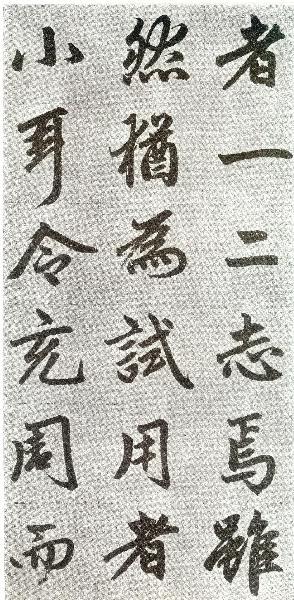 者一二志焉雖
然猶為試用者
小耳令充周而